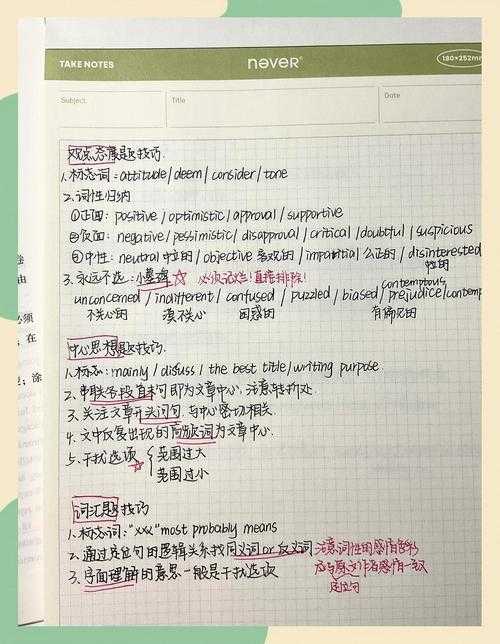 TAKE NOTES never® 180×252mm
Subject Title Date
观点态度题技巧.
1.标志词:attitude/deem/consider/tone
2.词性归纳
①正面: positive/optimistic/approval/supportive
②负面: negative/pessimistic/disapproval/critical/doubtful/suspicious
③中性: neutral 中立的/objective 客观的/impartial 公正的/disinterested
中性的
3.永远不选:小婊砸☆ 必须记烂!直接排除!
contemptous
unconcerned/indifferent/confused/puzzled/biased/prejudice/contemp
不关心的 漠不关心 困惑的 有偏见的
中心思想题技巧.
1.标志:mainly/disuss/the best title/writing purpose
2.串联各段首末句即为文章中心,注意转折处.
3.关注文章开头问句,与中心密切相关.
4.文中反复出现的高频词为文章中心.
5.干扰选项 范围过大
☆ 范围过小
词汇题技巧
1.标志词:"xxx" most probably means
2.通过定位句的逻辑关系找同义词or反义词 注意词性的感情色彩
3.字面理解的意思一般是干扰选项 应与原文作者感情一致
定位句
由
必须
;在
;涂